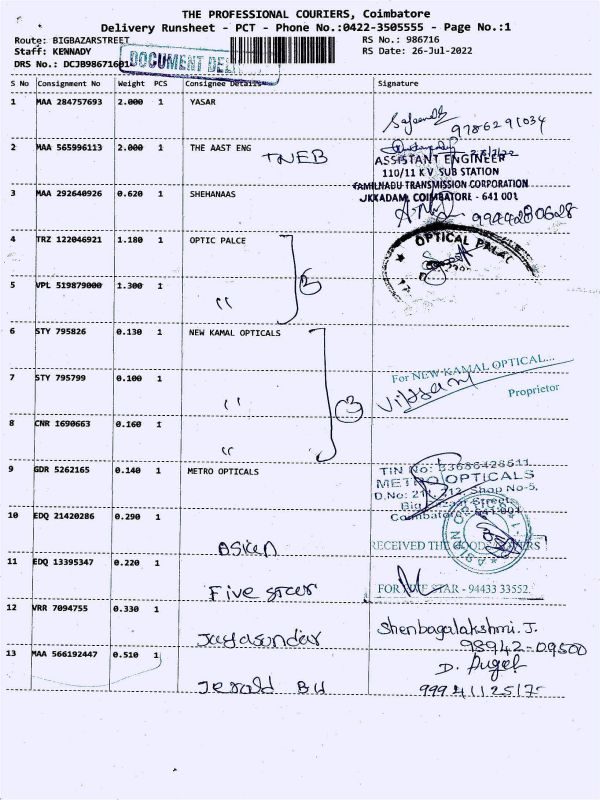 THE PROFESSIONAL COURIERS, Coimbatore
Delivery Runsheet - PCT - Phone No.:0422-3505555 - Page No.:1
Route: BIGBAZARSTREET RS No.: 986716
Staff: KENNADY RS Date: 26-Jul-2022
DRS No.: DCJB98671601
DOCUMENT DEL
S No Consignment No Weight PCS Consignee Details Signature
1 MAA 284757693 2.000 1 YASAR
9786291034
2 MAA 565996113 2.000 1 THE AAST ENG TNEB
ASSISTANT ENGINEER
110/11 K V SUB STATION
TAMILNADU TRANSMISSION CORPORATION
UKKADAM, COIMBATORE - 641 001
3 MAA 292640926 0.620 1 SHEHANAAS
9994280628
4 TRZ 122046921 1.180 1 OPTIC PALCE
OPTICAL PALAC
5 VPL 519879000 1.300 1 "
2
6 STY 795826 0.130 1 NEW KAMAL OPTICALS
For NEW KAMAL OPTICAL...
Proprietor
7 STY 795799 0.100 1 "
3
8 CNR 1690663 0.160 1 "
9 GDR 5262165 0.140 1 METRO OPTICALS
TIN No: 33686426611
METRO OPTICALS
D.No: 211, 212, Shop No-5,
Big Bazaar Street
Coimbatore - 641 001
10 EDQ 21420286 0.290 1 Asien
RECEIVED THE GOODS
11 EDQ 13395347 0.220 1 Five star
FOR FIVE STAR - 94433 33552.
12 VRR 7094755 0.330 1 Jayasundar
Shenbagalakshmi. J.
98942-09500
13 MAA 566192447 0.510 1 Jerald BH
D.
9994112517